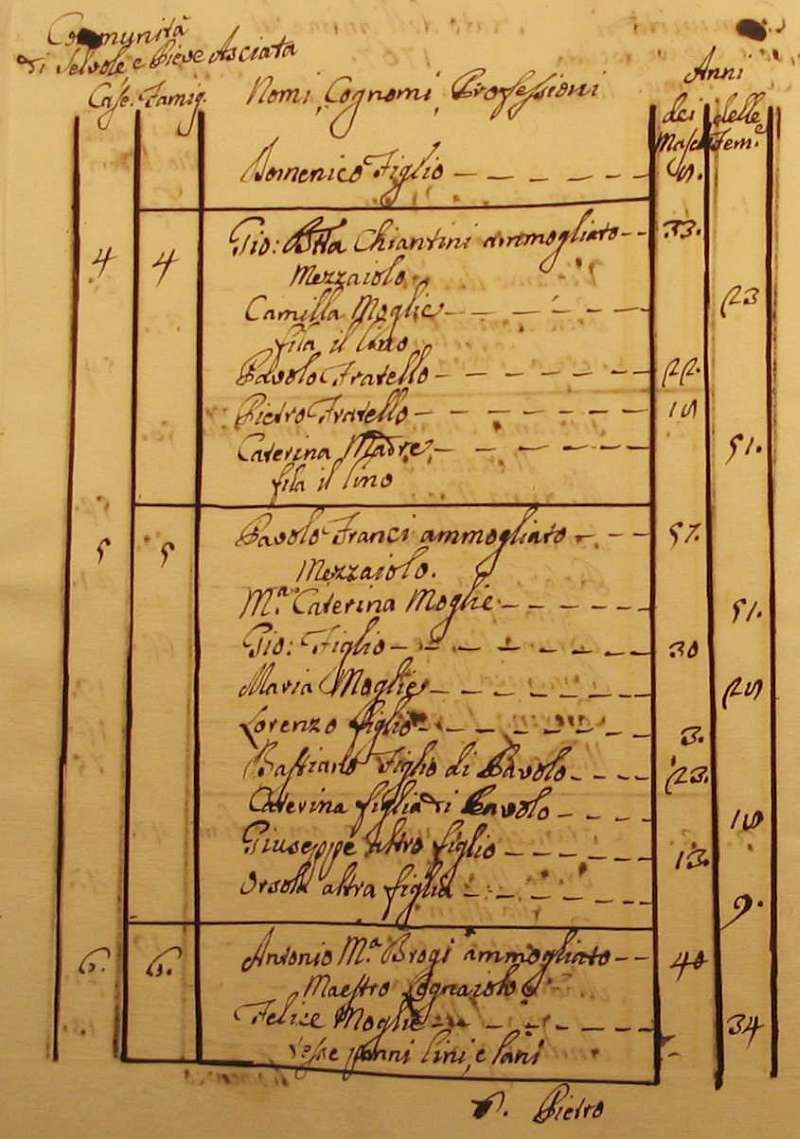 Comunità
di Selvole, e Pieve Asciata
Case. Famig. Nomi, Cognomi, Professioni Anni
dei delle
Masc. Fem.
Domenico Figlio 5.
4 4 Gio: Btta Chiantini ammogliato 33.
Mezzaiolo
Camilla Moglie 23
fila il lino
Pavolo Fratello 22.
Pietro Fratello 15
Caterina Madre 51.
fila il lino
5 5 Pavolo Franci ammogliato 57.
Mezzaiolo.
M.ª Caterina Moglie 51.
Gio: Figlio 30
Maria Moglie 25
Lorenzo figlio 3.
Bastiano Figlio di Pavolo 23.
Caterina figlia di Pavolo 15
Giuseppe altro figlio 13.
Orsola altra figlia 9.
6. 6. Antonio M.ª Brogi ammogliato 40
Maestro Legnaiolo
Felice Moglie 34
Tesse panni lini, e lani
6. Pietro